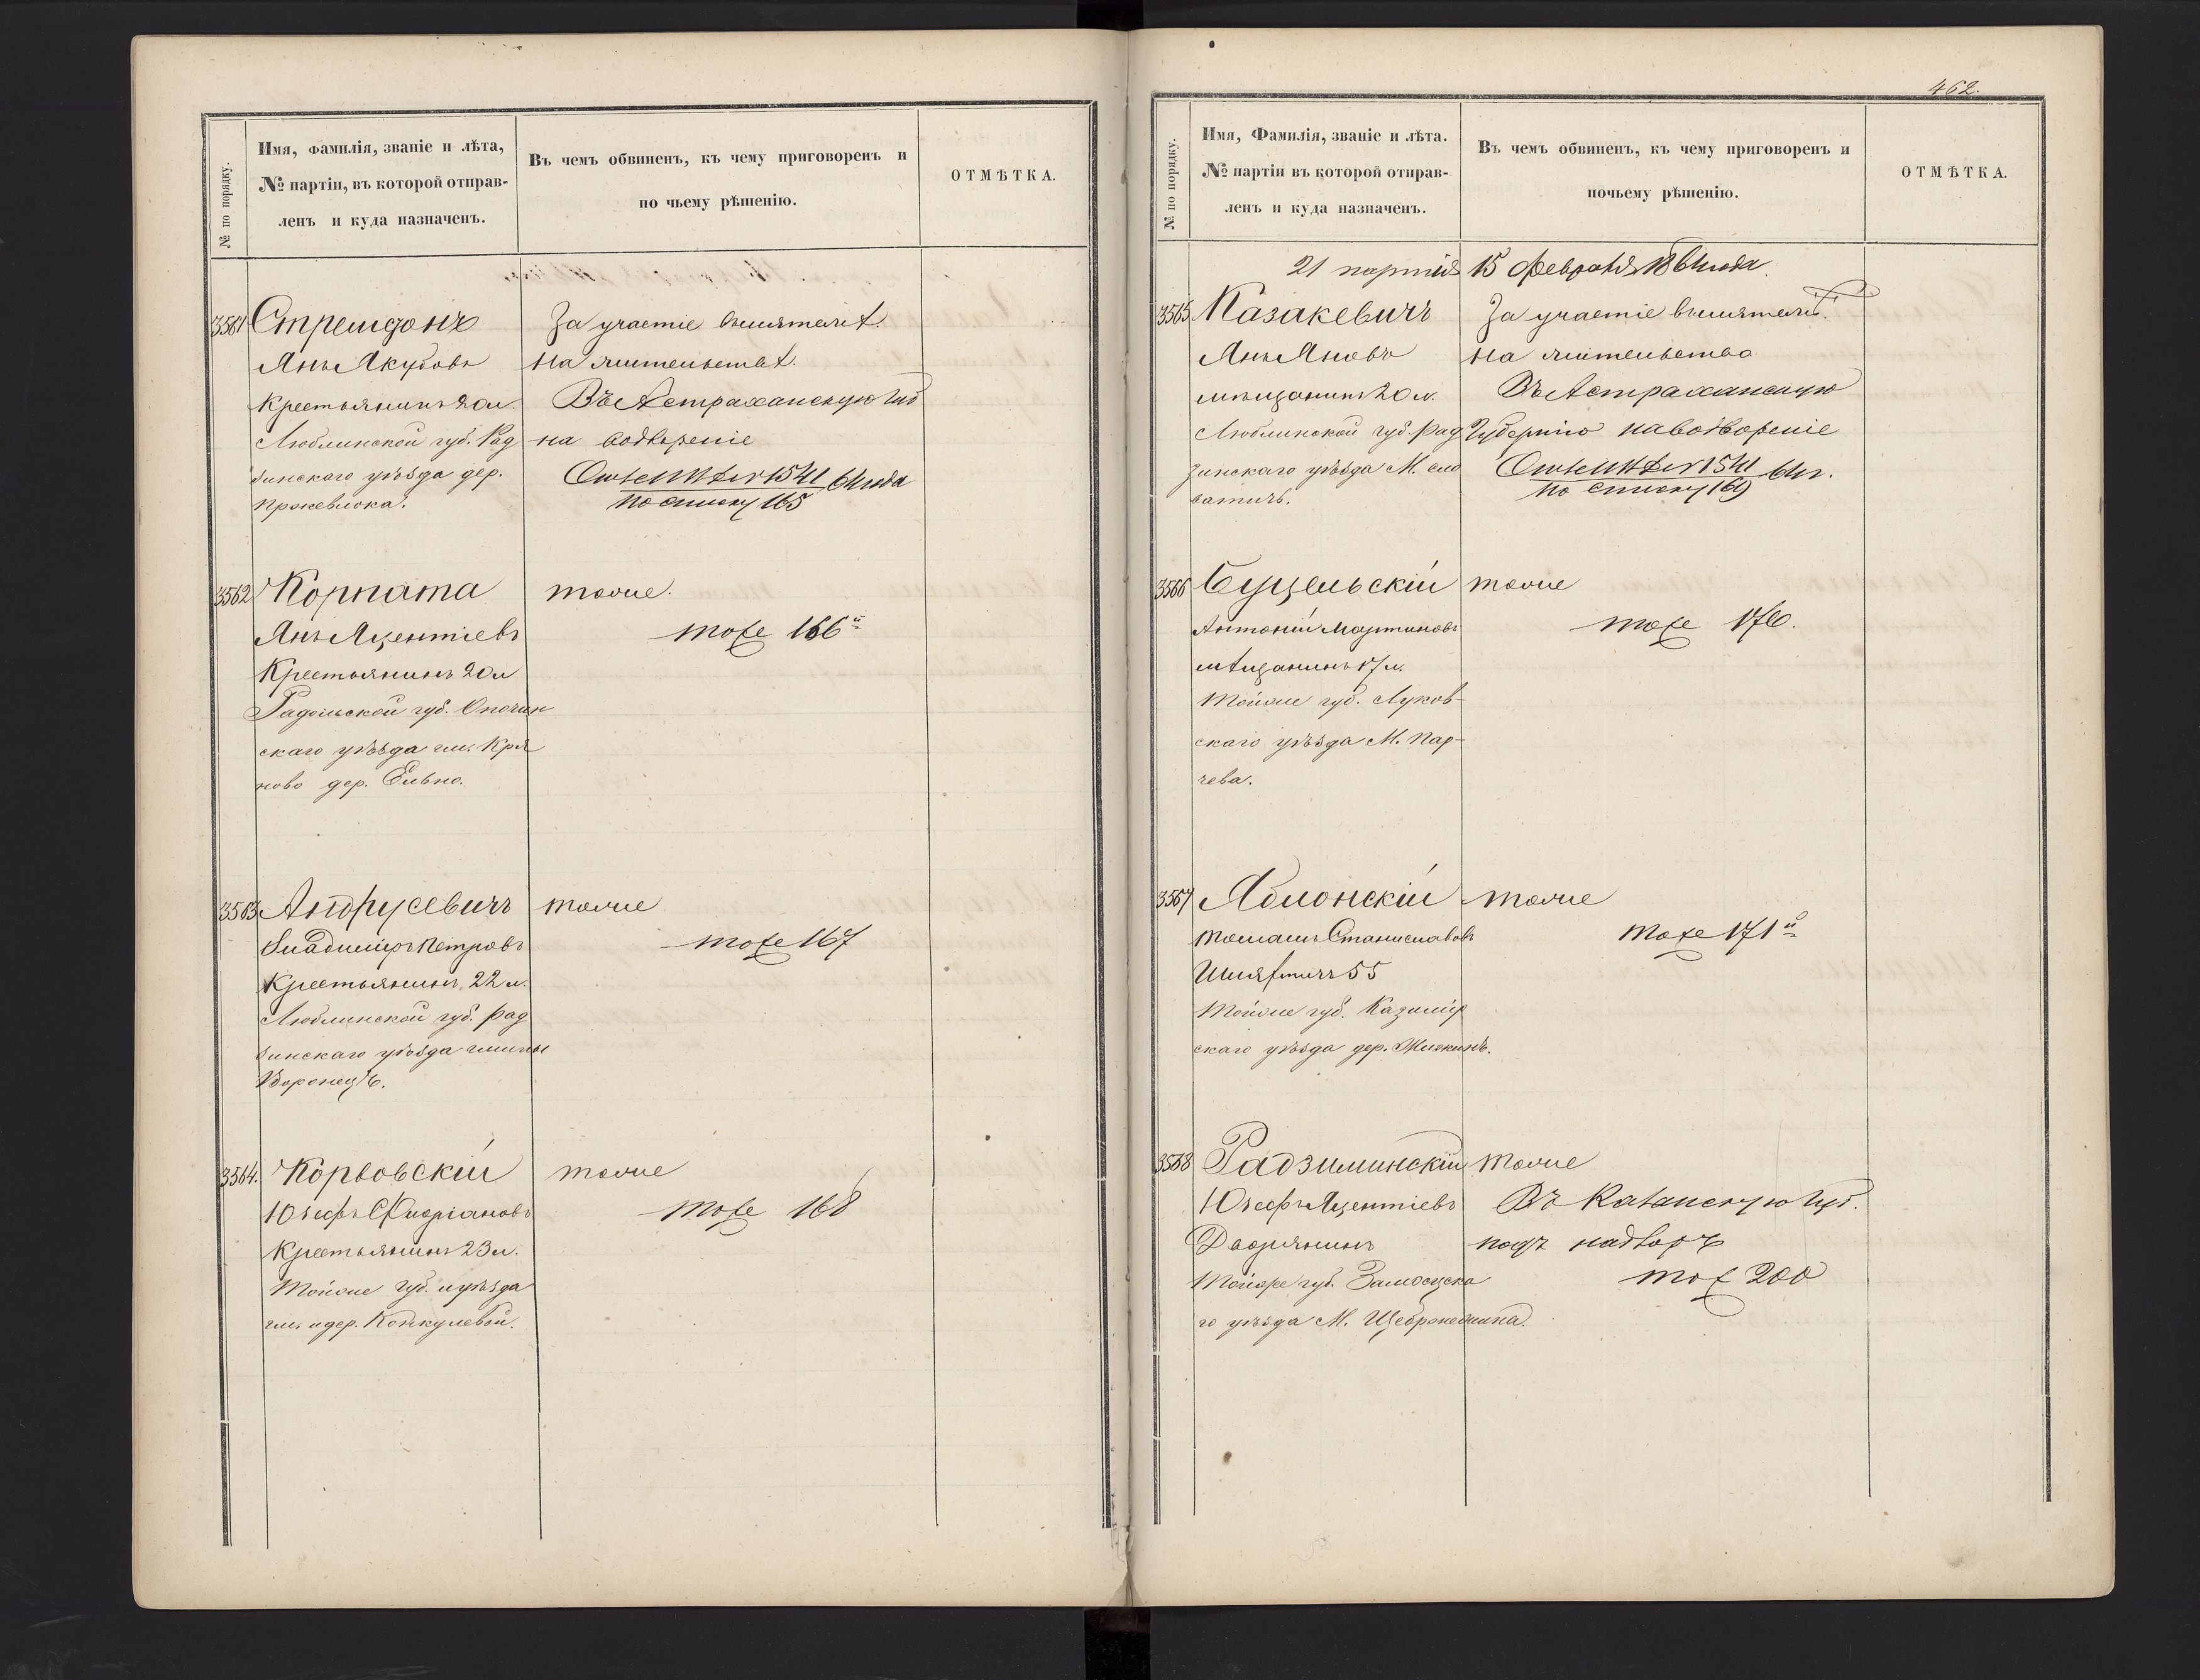 № по порядку.
Имя, Фамилія, званіе и лѣта,
№ партіи, въ которой отправ-
ленъ и куда назначенъ.
Въ чемъ обвиненъ, къ чему приговоренъ и
по чьему рѣшенію.
ОТМѢТКА.
3561
Стремдонъ
Янъ Якубовъ
Крестьянинъ 20 л.
Люблинской губ. Рад
зинскаго уѣзда дер.
За участіе въ мятежѣ.
на жительство.
Въ Астраханскую губ
на водвореніе
1541 64 года
по списку 165
3562
Корпата
Янъ Яцентіевъ
Крестьянинъ 20 л
Радомской губ. Опочин
скаго уѣзда гм. Кра
ново дер. Ельно.
тоже.
тоже 166й
3563
Андрусевичъ
Владиміръ Петровъ
Крестьянинъ, 22 л.
Люблинской губ. Рад
зинскаго уѣзда гмины
Воронецъ.
тоже
тоже 167
3564.
Корвовскій
Юзефъ Флоріановъ
Крестьянинъ 23 л.
Тойже губ. и уѣзда
гм. и дер. Конкулевой.
тоже
тоже 168
462.
№ по порядку.
Имя, Фамилія, званіе и лѣта.
№ партіи въ которой отправ-
ленъ и куда назначенъ.
Въ чемъ обвиненъ, къ чему приговоренъ и
почьему рѣшенію.
ОТМѢТКА.
21 партія 15 февраля 1864 года
3565
Казакевичъ
Янъ Яновъ
мѣщанинъ 20 л.
Люблинской губ. Рад
зинскаго уѣзда М. Сло
ватичъ.
За участіе въ мятежѣ.
на жительство
Въ Астраханскую
Губернію на водвореніе
1541 64 г.
по списку 169
3566
Буцельскій
Антоній Мартиновъ
мѣщанинъ 17 л.
Тойже губ. Луков-
скаго уѣзда М. Пар-
чева.
тоже
тоже 170.
3567
Яблонскій
Томашъ Станиславовъ
Шляхтичъ 55
Тойже губ. Казимір
скаго уѣзда дер.
тоже
тоже 171й
3568
Радзиминскій
Юзефъ Яцентіевъ
Дворянинъ
Тойже губ. Замосцска
го уѣзда М. Щебрешина.
тоже
Въ Казанскую губ.
подъ надзоръ
тож 200